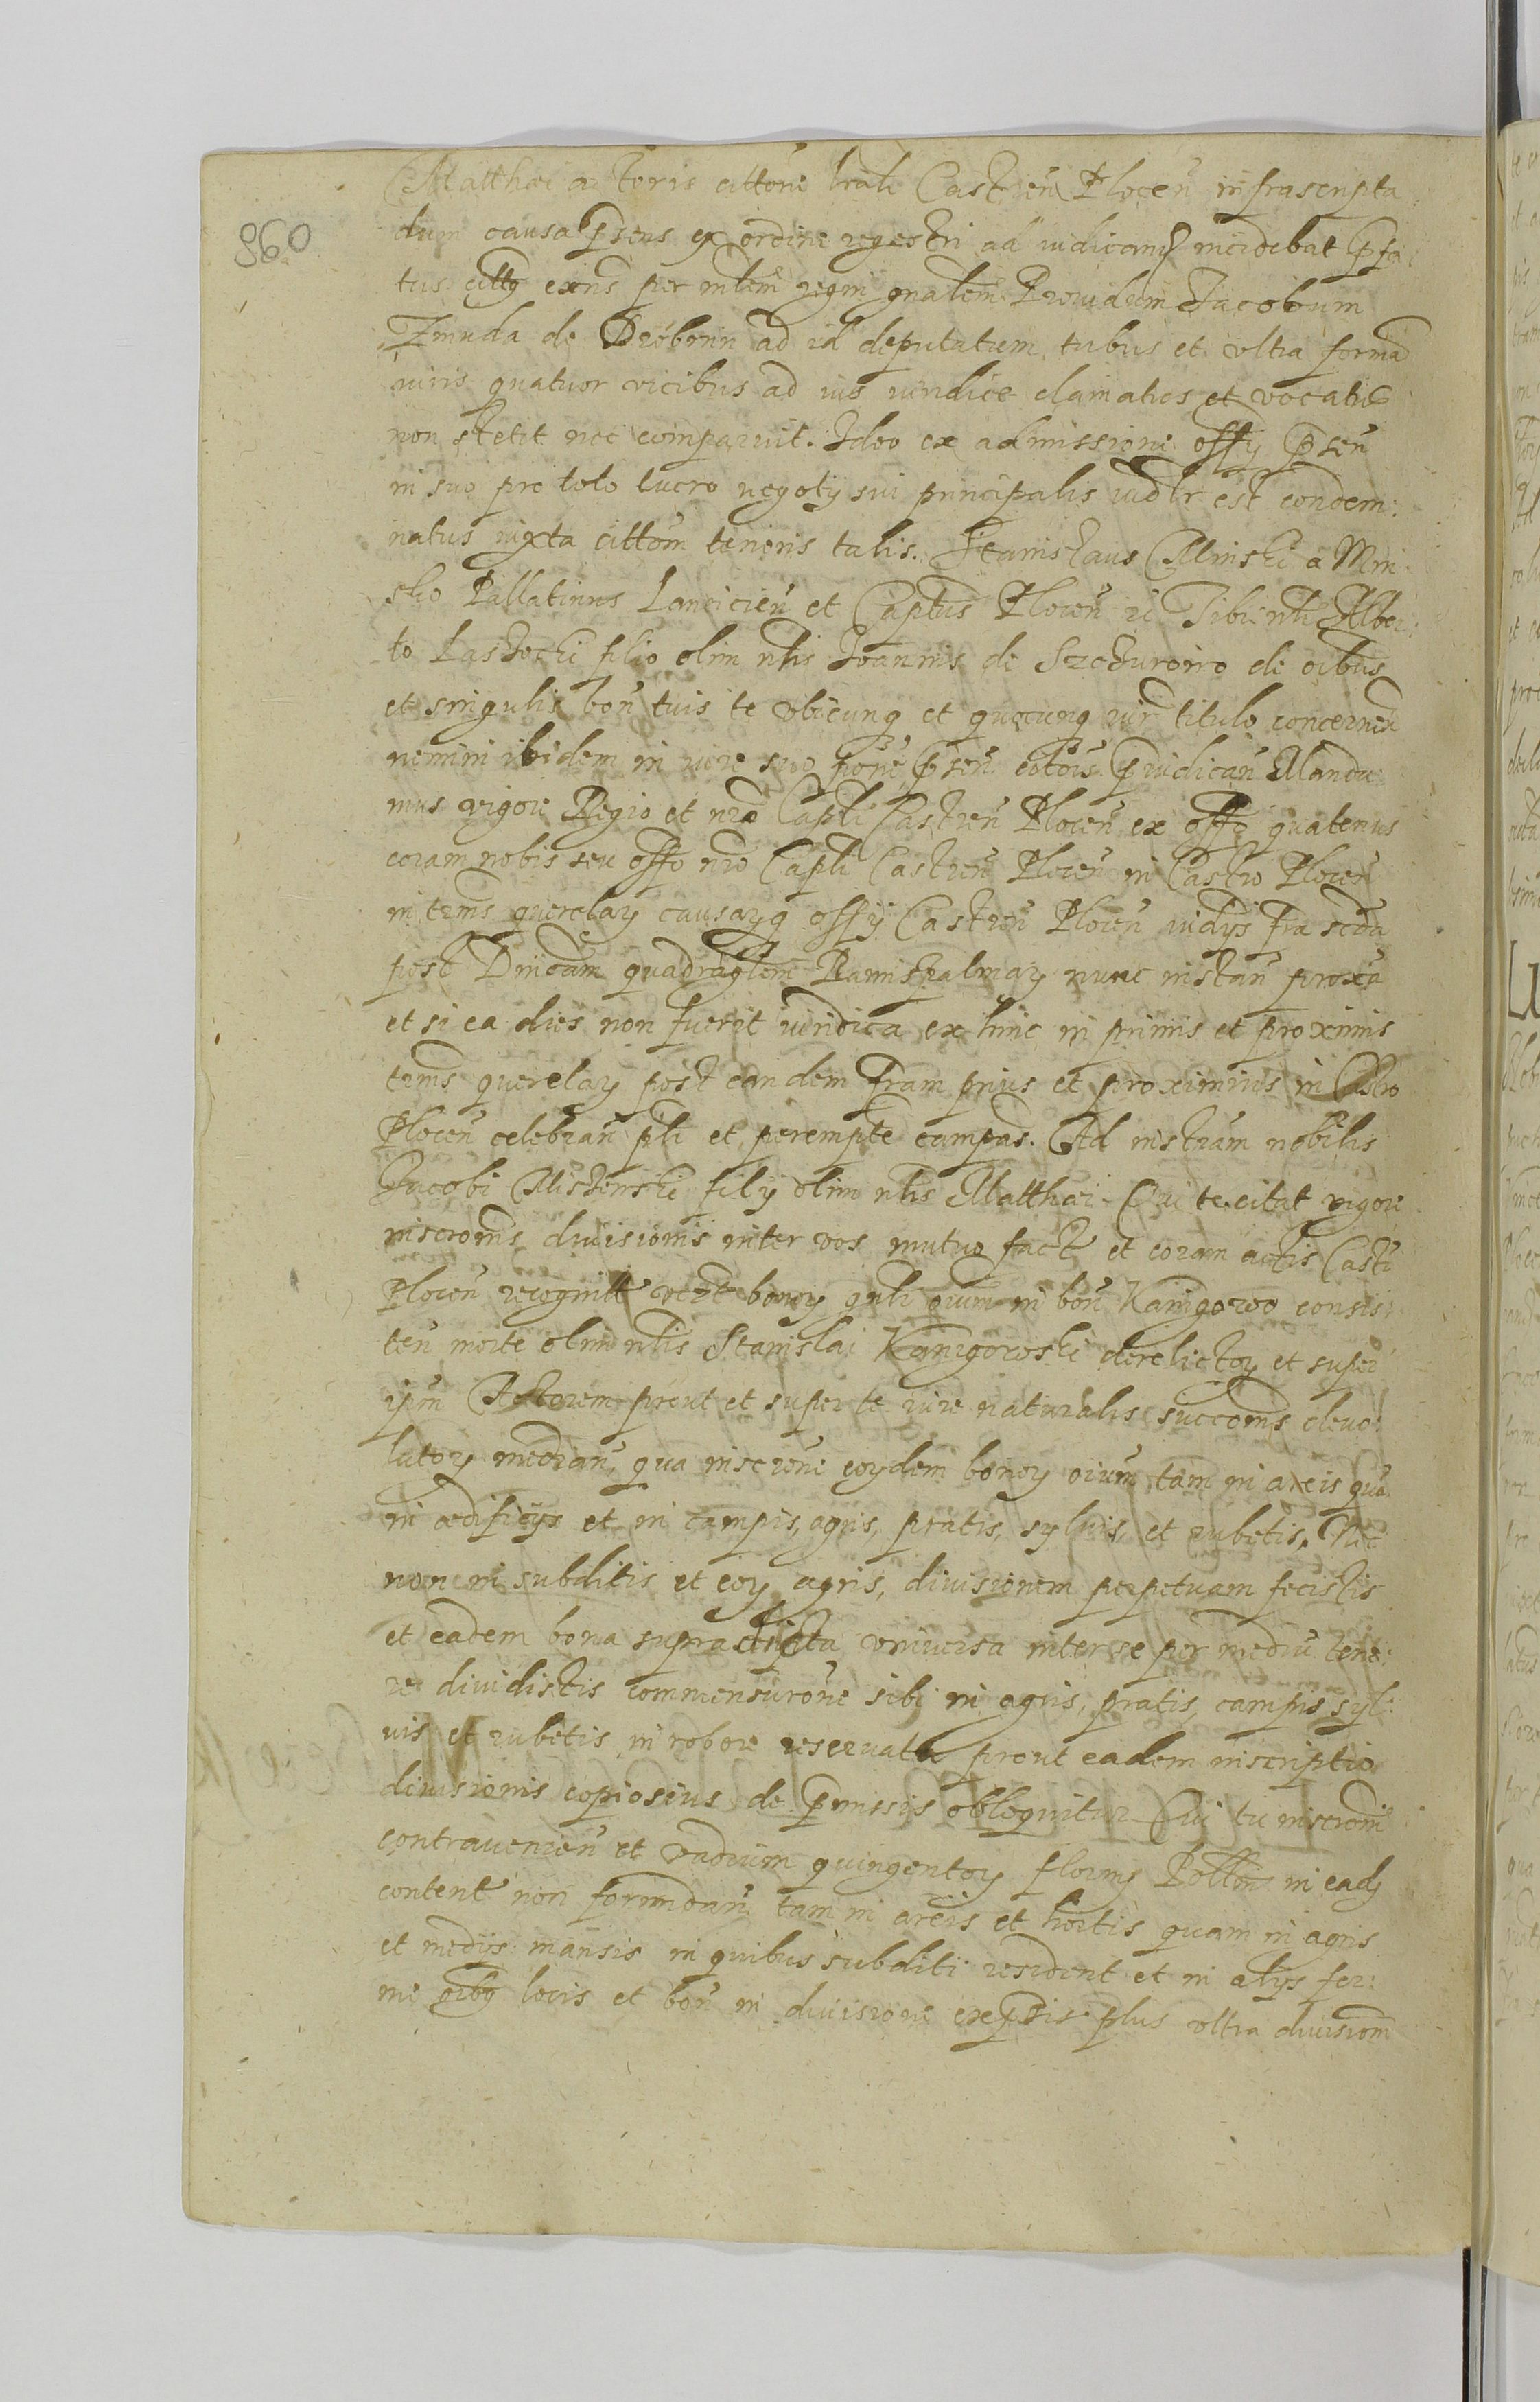 960
Matthæi actoris cittõne lrali Castreñ Ploceñ infrascripta
dum causa p̃sens ex ordine regestri ad iudicand incidebat p̃fa
tus citts exñs per mlem regni gnalem Providum Jacobum
Zmuda de Drobnin ad id deputatum, tribus et ultra forma
iuris quatuor vicibus ad ius iuridice clamatus et vocatus
non stetit nec comparuit. Ideo ex admissione offy p̃señ
in suo pro tolo lucro negotÿ sui principalis iudlr est condem:
natus iuxta cittõm tenoris talis. Stanislaus Minski a Min
sko Pallatinus Lanciciеñ et Captus Ploceñ ꝛc Tibi nli Alber:
to Lastocki filio olim nlis Joannis de Szchurowo de oibus
et singulis boñ tuis te ubicunq et quocunq iur titulo concerneñ
nemini ibidem in iure suo põne p̃señ cotõis p̃iudicañ Manda
mus vigore Regio et nro Capli Castreñ Ploceñ ex offo quatenus
coram nobis seu offo nro Capli Castreñ Ploceñ in Castro Ploceñ
in trms querelaꝝ causaꝝq offÿ Castreñ Ploceñ iudÿs fra scda
post Dnicam quadraglem Ramispalmaꝝ nunc instañ proxa
et si ea dies non fuerit iuridica ex hinc in primis et proximis
trms querelaꝝ post eandem fram prius et proximius in Castro
Ploceñ celebrañ pli et perempte compas. Ad instam nobilis
Jacobi Misterski filÿ olim nlis Matthæi. Qui te citat vigore
inscroms divisionis inter vos mutuo fact et coram actis Casti
Ploceñ recognitt bonoꝝ oium in boñ Kanigowo consis:
teñ morte olim nlis Stanislai Kanigowski derelictoꝝ et super
ipm Actorem prout et super te iure naturalis succoms devo:
lutoꝝ medianꝰ qua inscrone eoꝝdem bonoꝝ oium tam in areis qua
in ædificÿs et in campis, agris, pratis, sylvis, et rubetis, Nec
non in subditis et eoꝝ agris, divisionem perpetuam fecistis
et eadem bona suprascripta universa inter se per mediu tene:
re dividistis commensurone sibi in agris, pratis, campis syl:
vis et rubetis in robore reservata prout eadem inscriptio
divisionis copiosius de p̃missis obloquitur Cui tu inscroni
contravenieñ et vadium quingentoꝝ florenꝝ Pollon in eadꝫ
content non formidañ tam in areis et hortis quam in agris
et medÿs mansis in quibus subditi resident et in alÿs fer:
me oibꝰ locis et boñ in divisione exp̃sis plus ultra divisionem